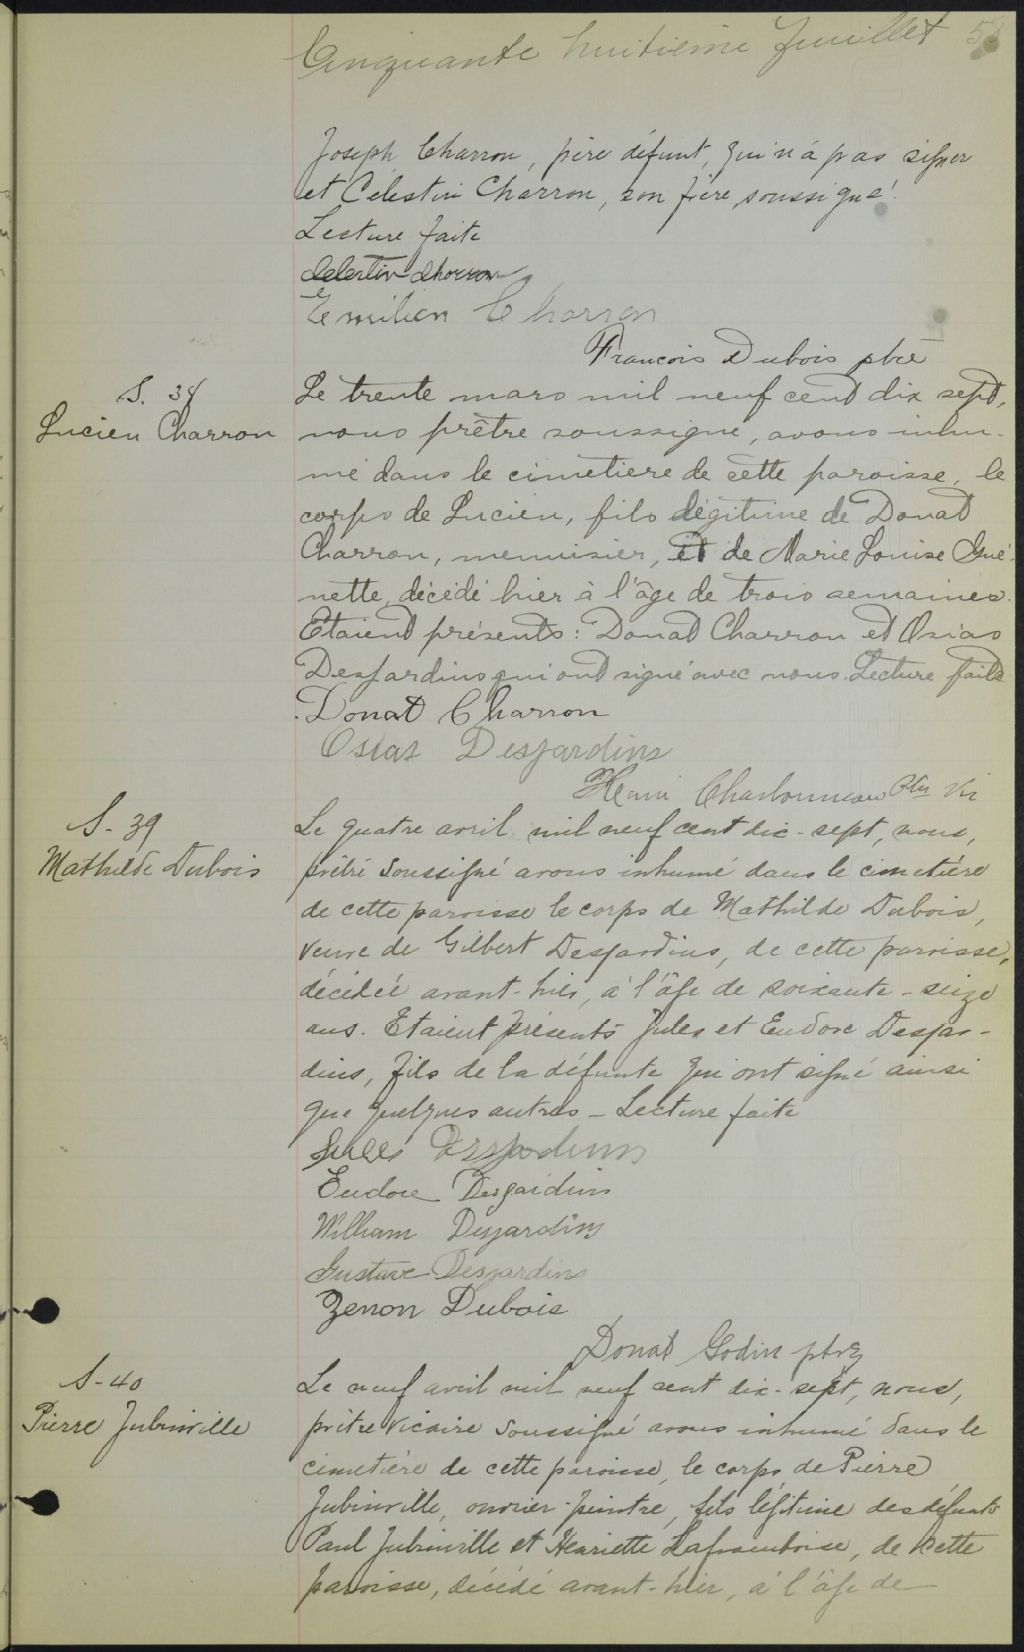 Cinquante huitième feuillet 58
Joseph Charron, père défunt, qui n'a pas signer
et Célestin Charron, son frère, soussigné!
Lecture faite
Celestin Charron
Emilien Charron
Francois Dubois ptre
S. 38
Lucien Charron
Le trente mars mil neuf cent dix sept,
nous prêtre soussigné, avons inhu-
mé dans le cimetiere de cette paroisse, le
corps de Lucien, fils légitime de Donat
Charron, menuisier, et de Marie Louise Gué-
nette, décédé hier à l'âge de trois semaines.
Etaient présents: Donat Charron et Osias
Desjardins qui ont signé avec nous. Lecture faite
Donat Charron
Osias Desjardins
Henri Charbonneau Ptre Vic
S-39
Mathilde Dubois
Le quatre avril mil neuf cent dix-sept, nous,
prêtre soussigné avons inhumé dans le cimetière
de cette paroisse le corps de Mathilde Dubois,
veuve de Gilbert Desjardins, de cette paroisse,
décédée avant-hier, à l'âge de soixante-seize
ans. Etaient présents Jules et Eudore Desjar-
dins, fils de la défunte qui ont signé ainsi
que quelques autres - Lecture faite
Jules Desjardins
Eudore Desjardins
William Desjardins
Gustave Desjardins
Zenon Dubois
Donat Godin ptre
S-40
Pierre Jubinville
Le neuf avril mil neuf cent dix-sept, nous,
prêtre vicaire soussigné avons inhumé dans le
cimetière de cette paroisse, le corps de Pierre
Jubinville, ouvrier-peintre, fils légitime des défunts
Paul Jubinville et Henriette Laframboise, de cette
paroisse, décédé avant-hier, à l'âge de